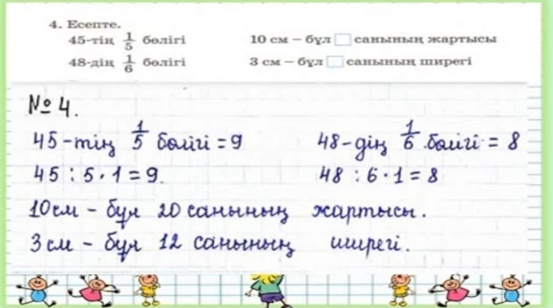 4. Есепте.
45-тің 1/5 бөлігі 10 см – бұл □ санының жартысы
48-дің 1/6 бөлігі 3 см – бұл □ санының ширегі
№ 4.
45-тің 1/5 бөлігі = 9 48-дің 1/6 бөлігі = 8
45 : 5 · 1 = 9. 48 : 6 · 1 = 8
10 см – бұл 20 санының жартысы.
3 см – бұл 12 санының ширегі.